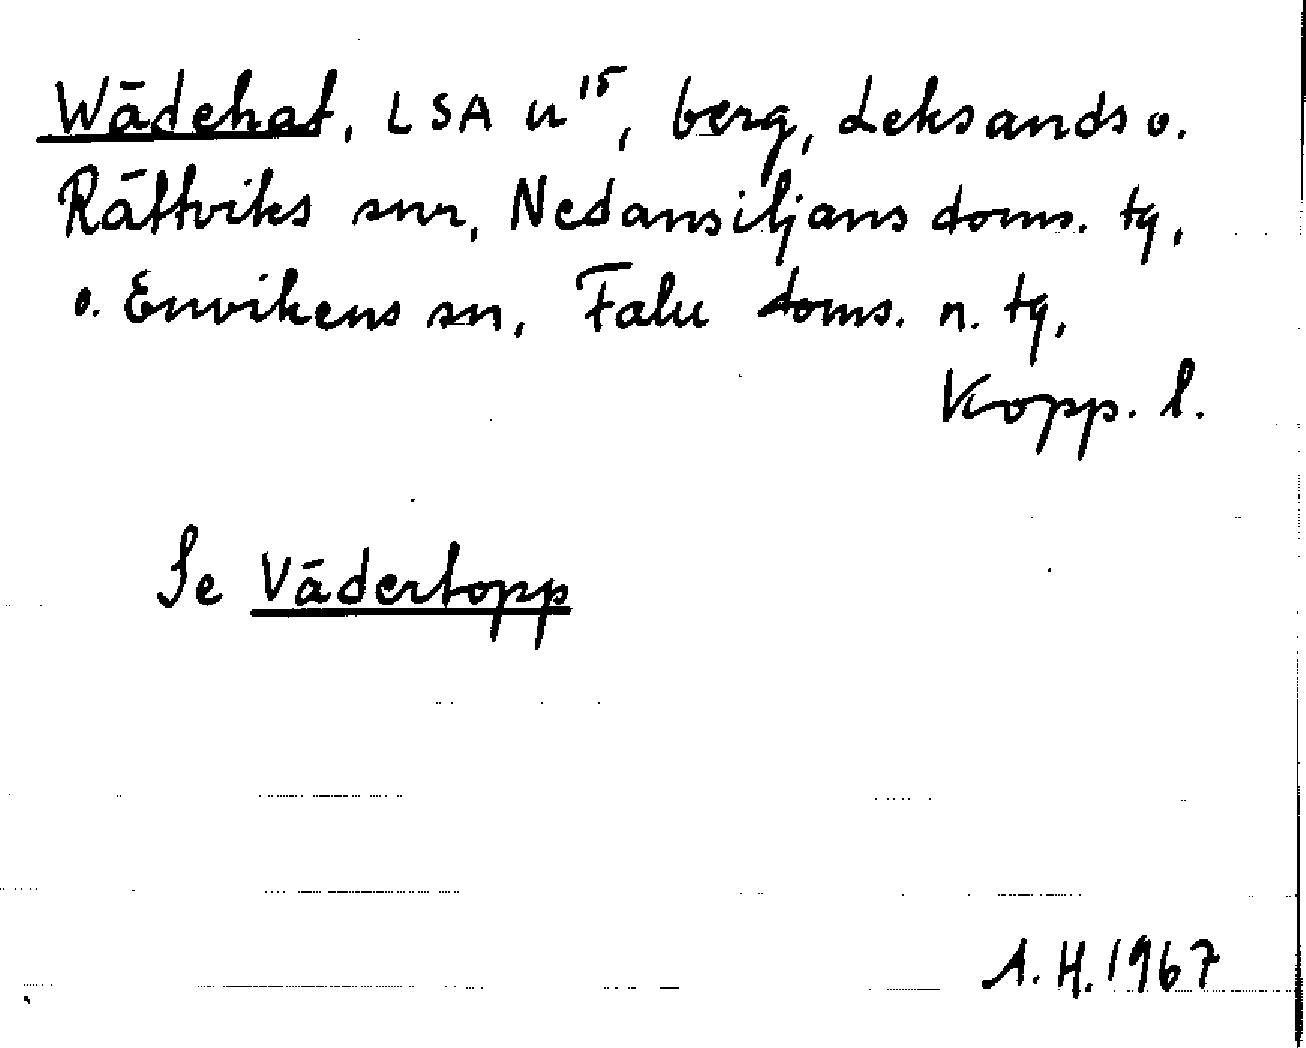 Wädehat, LSA u¹⁵, berg, Leksands o.
Rättviks snr, Nedansiljans doms. tg,
o. Envikens sn, Falu doms. n. tg,
Kopp. l.
Se Vädertopp
A. H. 1967